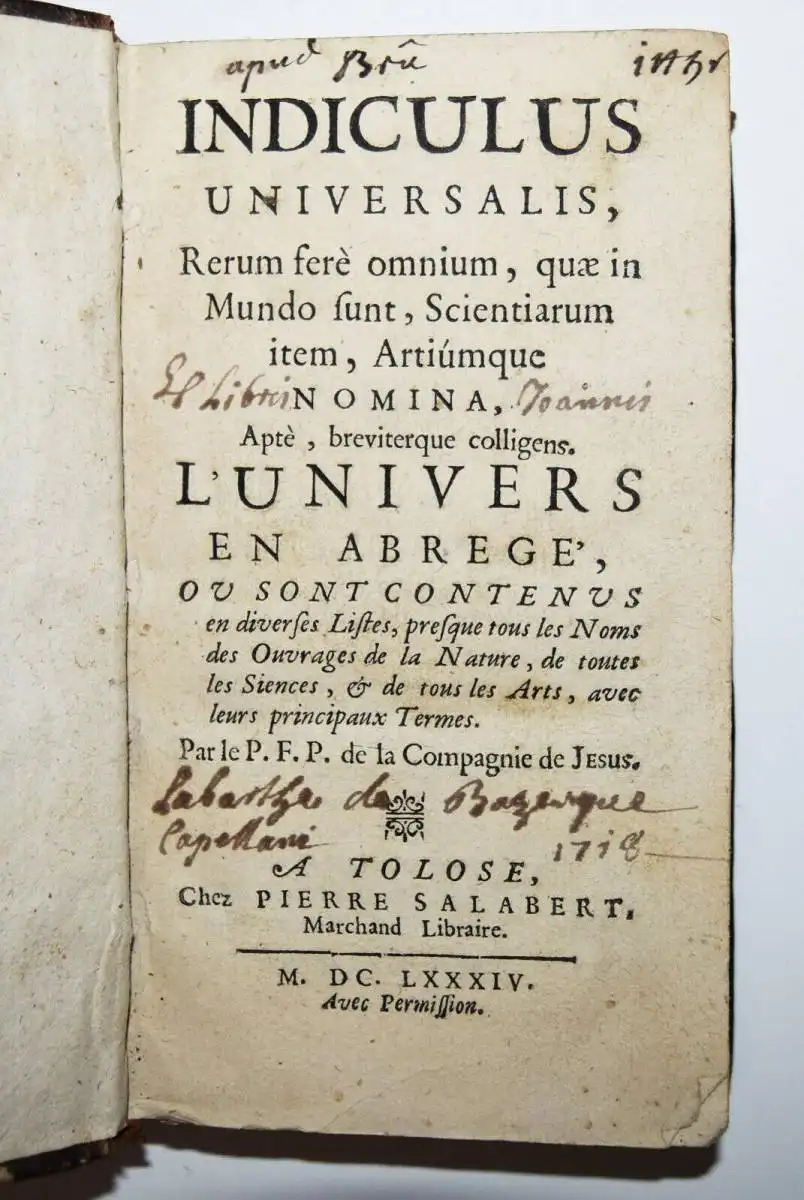 apud Brũ
INDICULUS
UNIVERSALIS,
Rerum ferè omnium, quæ in
Mundo ſunt, Scientiarum
item, Artiúmque
Ex Libris NOMINA, Joannis
Aptè, breviterque colligens.
L'UNIVERS
EN ABREGE',
OV SONT CONTENVS
en diverſes Liſtes, preſque tous les Noms
des Ouvrages de la Nature, de toutes
les Siences, & de tous les Arts, avec
leurs principaux Termes.
Par le P. F. P. de la Compagnie de JESUS.
Labarthe de Bazerque
Capellani 1718
A TOLOSE,
Chez PIERRE SALABERT,
Marchand Libraire.
M. DC. LXXXIV.
Avec Permiſſion.